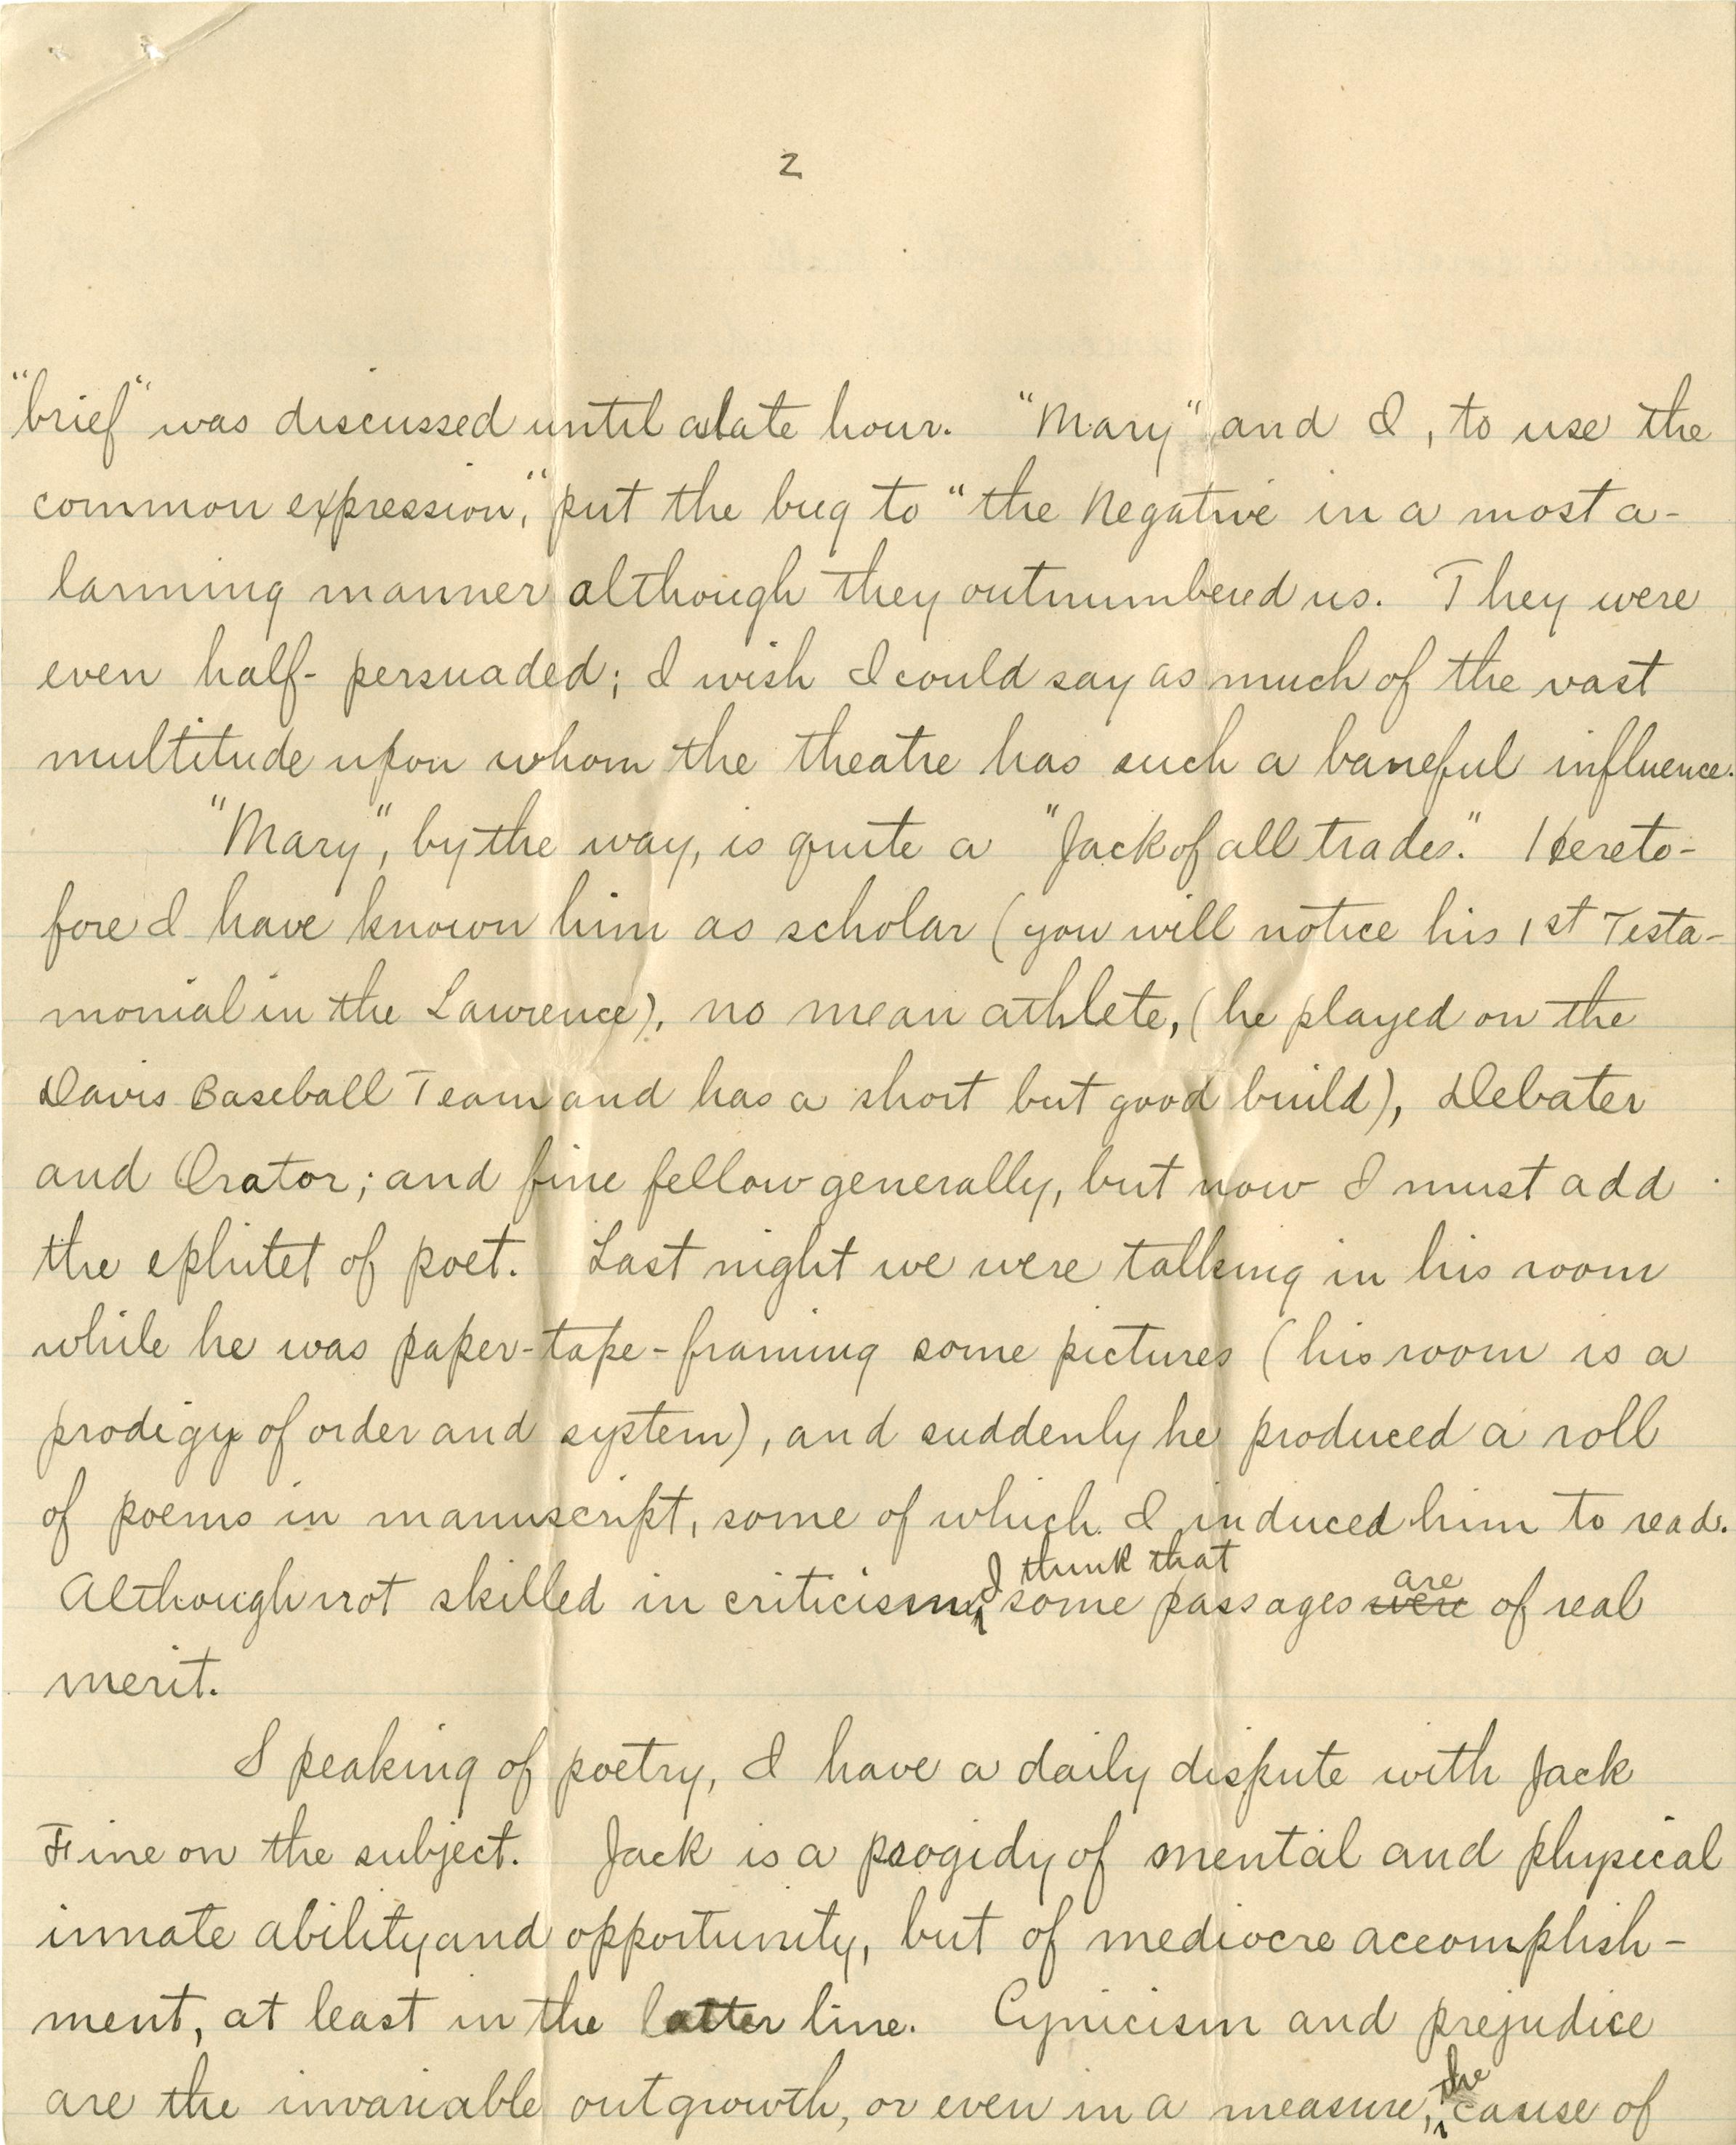 2
"brief" was discussed until a late hour. "Mary" and I, to use the
common expression," put the bug to "the Negative in a most a-
larming manner although they outnumbered us. They were
even half-persuaded; I wish I could say as much of the vast
multitude upon whom the theatre has such a baneful influence.
"Mary", by the way, is quite a "Jack of all trades." Hereto-
fore I have known him as scholar (you will notice his 1st Testa-
monial in the Lawrence), no mean athlete, (he played on the
Davis Baseball Team and has a short but good build), Debater
and Orator; and fine fellow generally, but now I must add
the ephitet of poet. Last night we were talking in his room
while he was paper-tape-framing some pictures (his room is a
prodigy of order and system), and suddenly he produced a roll
of poems in manuscript, some of which I induced him to read.
I think that are
Although not skilled in criticism, some passages were of real
merit.
Speaking of poetry, I have a daily dispute with Jack
Fine on the subject. Jack is a progidy of mental and physical
innate ability and opportunity, but of mediocre accomplish-
ment, at least in the latter line. Cynicism and prejudice
the
are the invariable outgrowth, or even in a measure, cause of